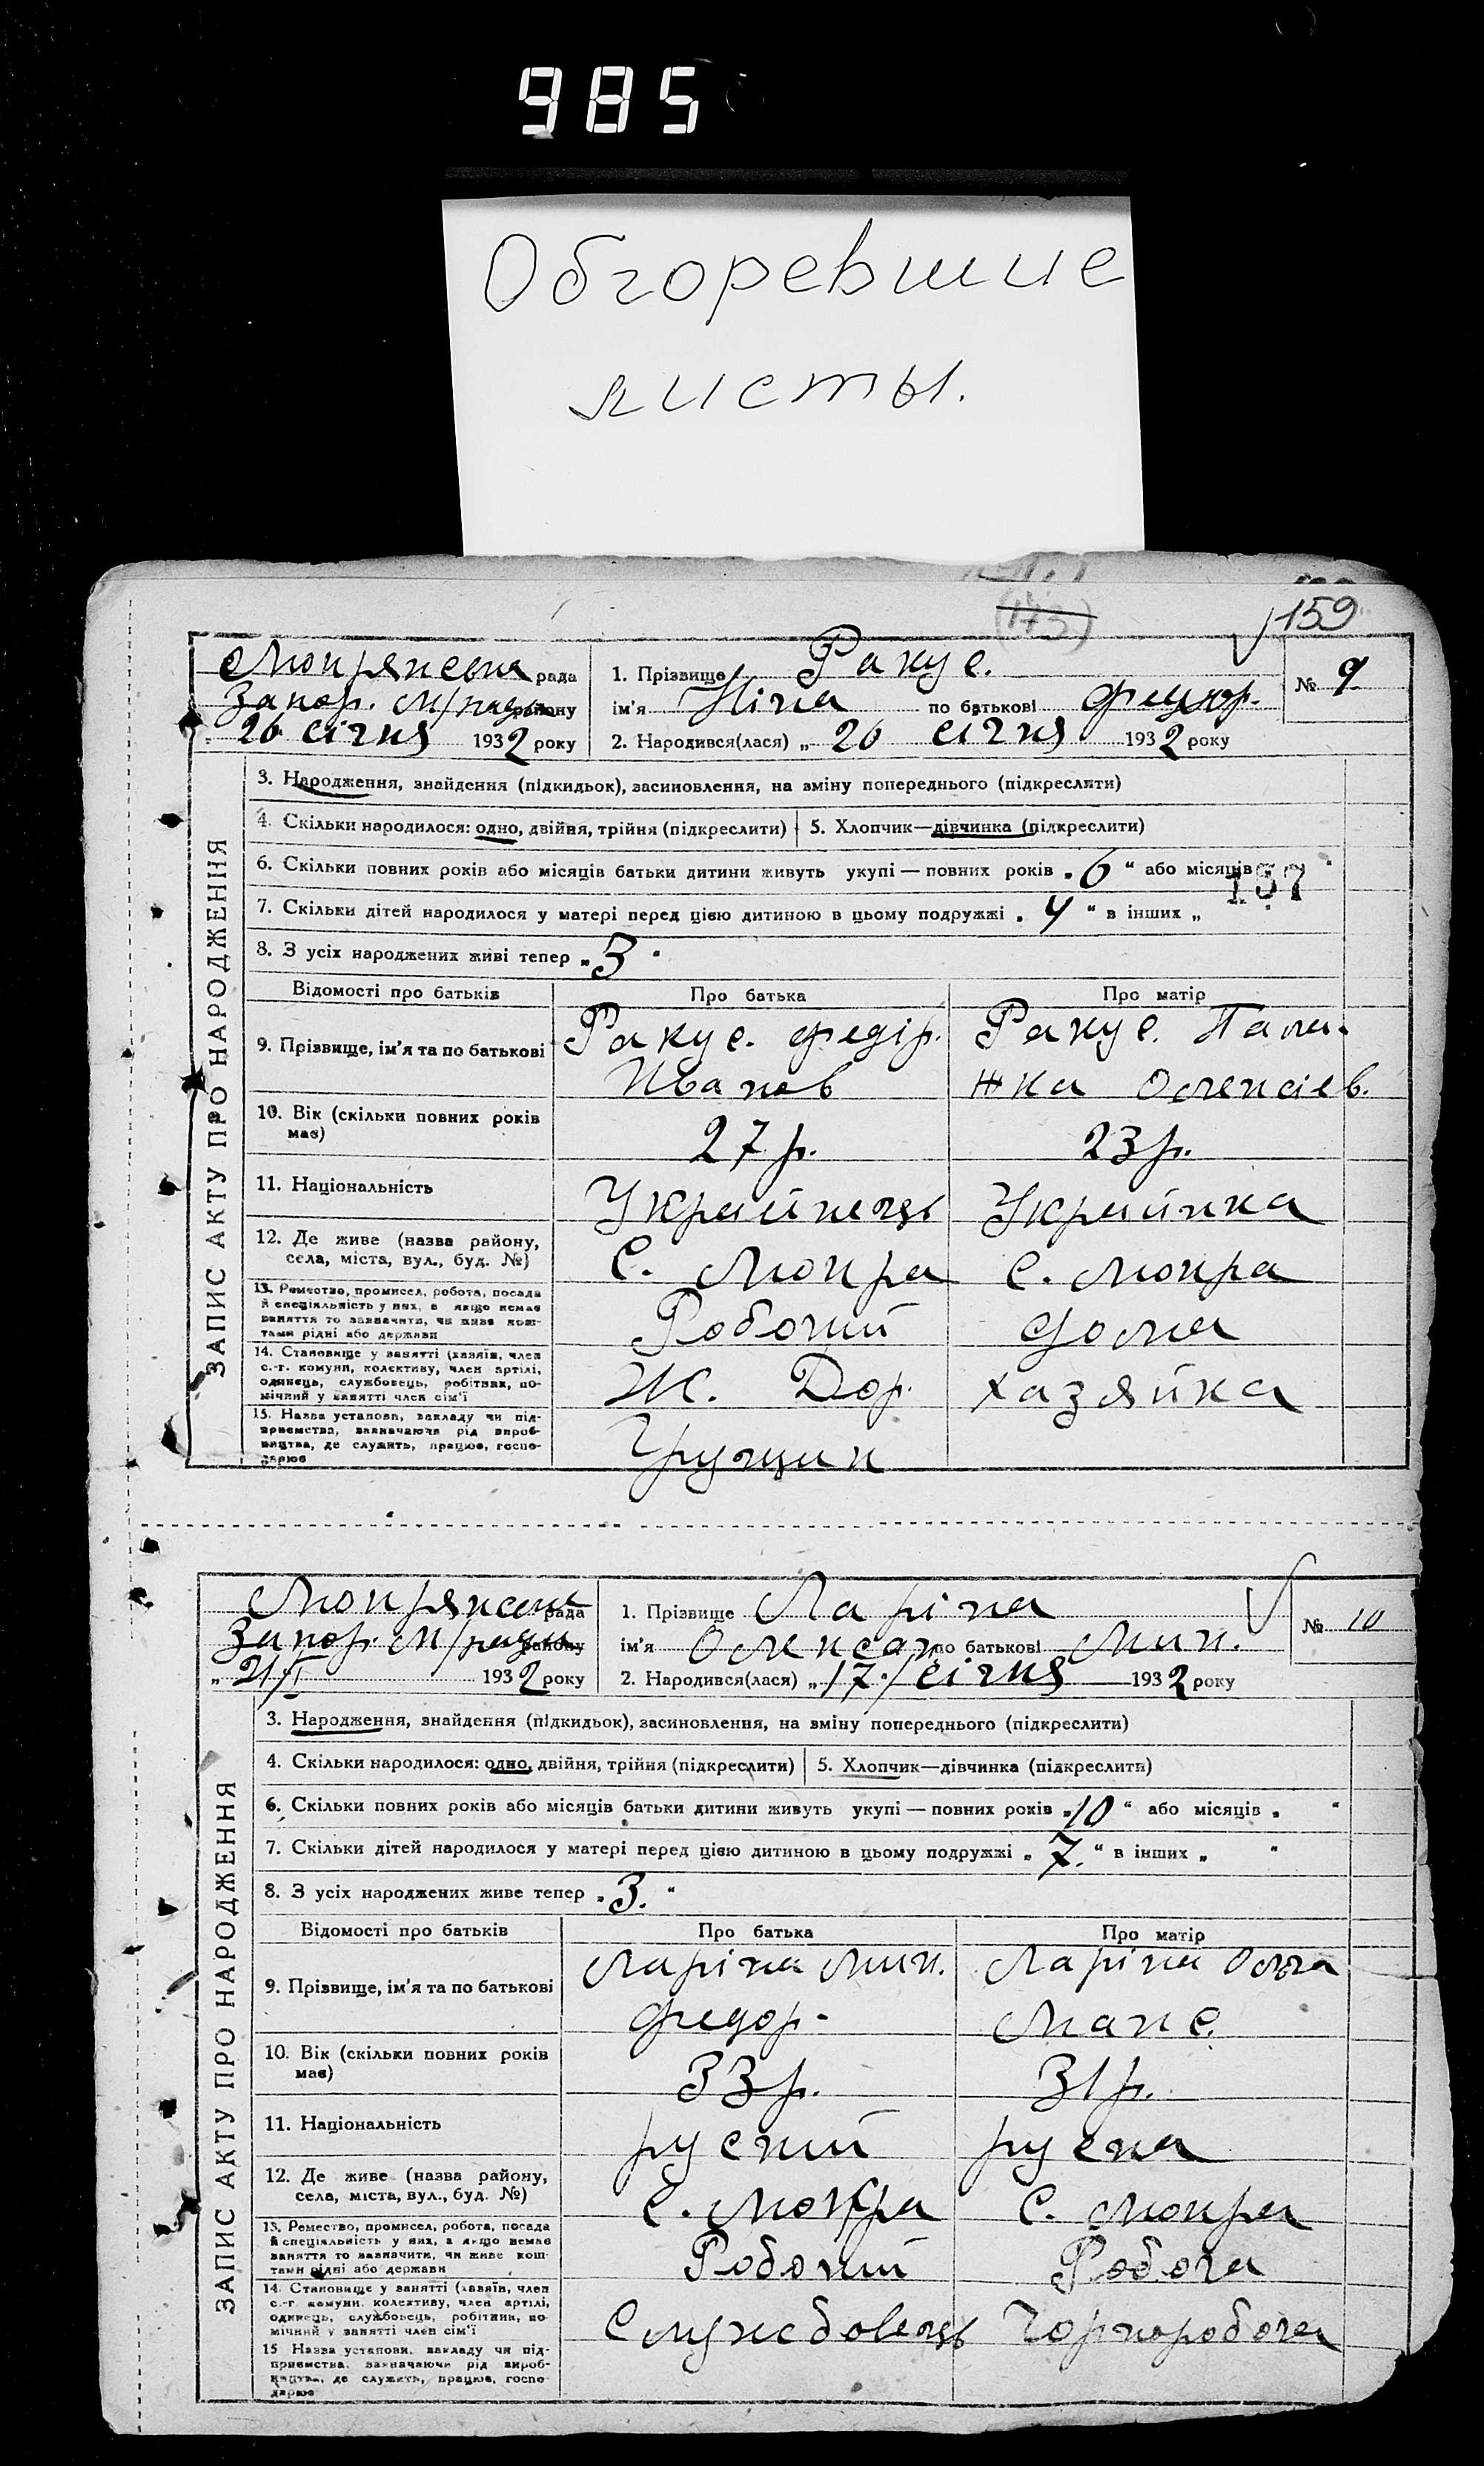 985
Обгоревшие
листы.
(173)
159
Мопрянська рада
Запор. м/ради району
26 січня 1932 року
1. Прізвище Ракус.
ім'я Ніна по батькові Федор.
№ 9.
2. Народився(лася) „ 20 січня 1932 року
ЗАПИС АКТУ ПРО НАРОДЖЕННЯ
3. Народження, знайдення (підкидьок), засиновлення, на зміну попереднього (підкреслити)
4. Скільки народилося: одно, двійня, трійня (підкреслити) 5. Хлопчик—дівчинка (підкреслити)
6. Скільки повних років або місяців батьки дитини живуть укупі — повних років „ 6 “ або місяців
157
7. Скільки дітей народилося у матері перед цією дитиною в цьому подружжі „ 4 “ в інших „
8. З усіх народжених живі тепер „ 3 “
Відомості про батьків Про батька Про матір
9. Прізвище, ім'я та по батькові Ракус. Федір. Ракус. Пала-
Иванов жка Олексієв.
10. Вік (скільки повних років має) 27 р. 23 р.
11. Національність Украйнець Украйнка
12. Де живе (назва району, села, міста, вул., буд. №) С. Мопра С. Мопра
13. Ремество, промисел, робота, посада й спеціяльність у них, а якщо немає заняття то зазначити, чи живе коштами рідні або держави Робочий Дома
14. Становище у занятті (хазяїн, член с.-г. комуни, колективу, член артілі, одинець, службовець, робітник, помічний у занятті член сім'ї Ж. Дор. хазяйка
15. Назва установи, закладу чи підприємства, зазначаючи рід виробництва, де служить, працює, господарює
Мопрянська рада
Запор. м/ради району
„ 21/I 1932 року
1. Прізвище Ларіна
ім'я Олександ по батькові Мик.
№ 10
2. Народився(лася) „ 17./січня 1932 року
ЗАПИС АКТУ ПРО НАРОДЖЕННЯ
3. Народження, знайдення (підкидьок), засиновлення, на зміну попереднього (підкреслити)
4. Скільки народилося: одно, двійня, трійня (підкреслити) 5. Хлопчик—дівчинка (підкреслити)
6. Скільки повних років або місяців батьки дитини живуть укупі — повних років „ 10 “ або місяців „ “
7. Скільки дітей народилося у матері перед цією дитиною в цьому подружжі „ 7. “ в інших „ “
8. З усіх народжених живе тепер „ 3. “
Відомості про батьків Про батька Про матір
9. Прізвище, ім'я та по батькові Ларіна Мик. Ларіна Ольга
Федор. Макс.
10. Вік (скільки повних років має) 33 р. 31 р.
11. Національність руский руска
12. Де живе (назва району, села, міста, вул., буд. №) С. Мопра С. Мопра
13. Ремество, промисел, робота, посада й спеціяльність у них, а якщо немає заняття то зазначити, чи живе коштами рідні або держави Робочий Робоча
14. Становище у занятті (хазяїн, член с.-г. комуни, колективу, член артілі, одинець, службовець, робітник, помічний у занятті член сім'ї Служсбовець Чорноробоча
15 Назва установи, закладу чи підприємства, зазначаючи рід виробництва, де служить, працює, господарює